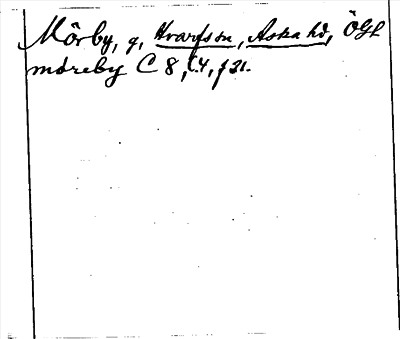 Mörby, g, Hvarfs sn, Aska hd, ÖGL
möreby C 8, f. 4, f 21.